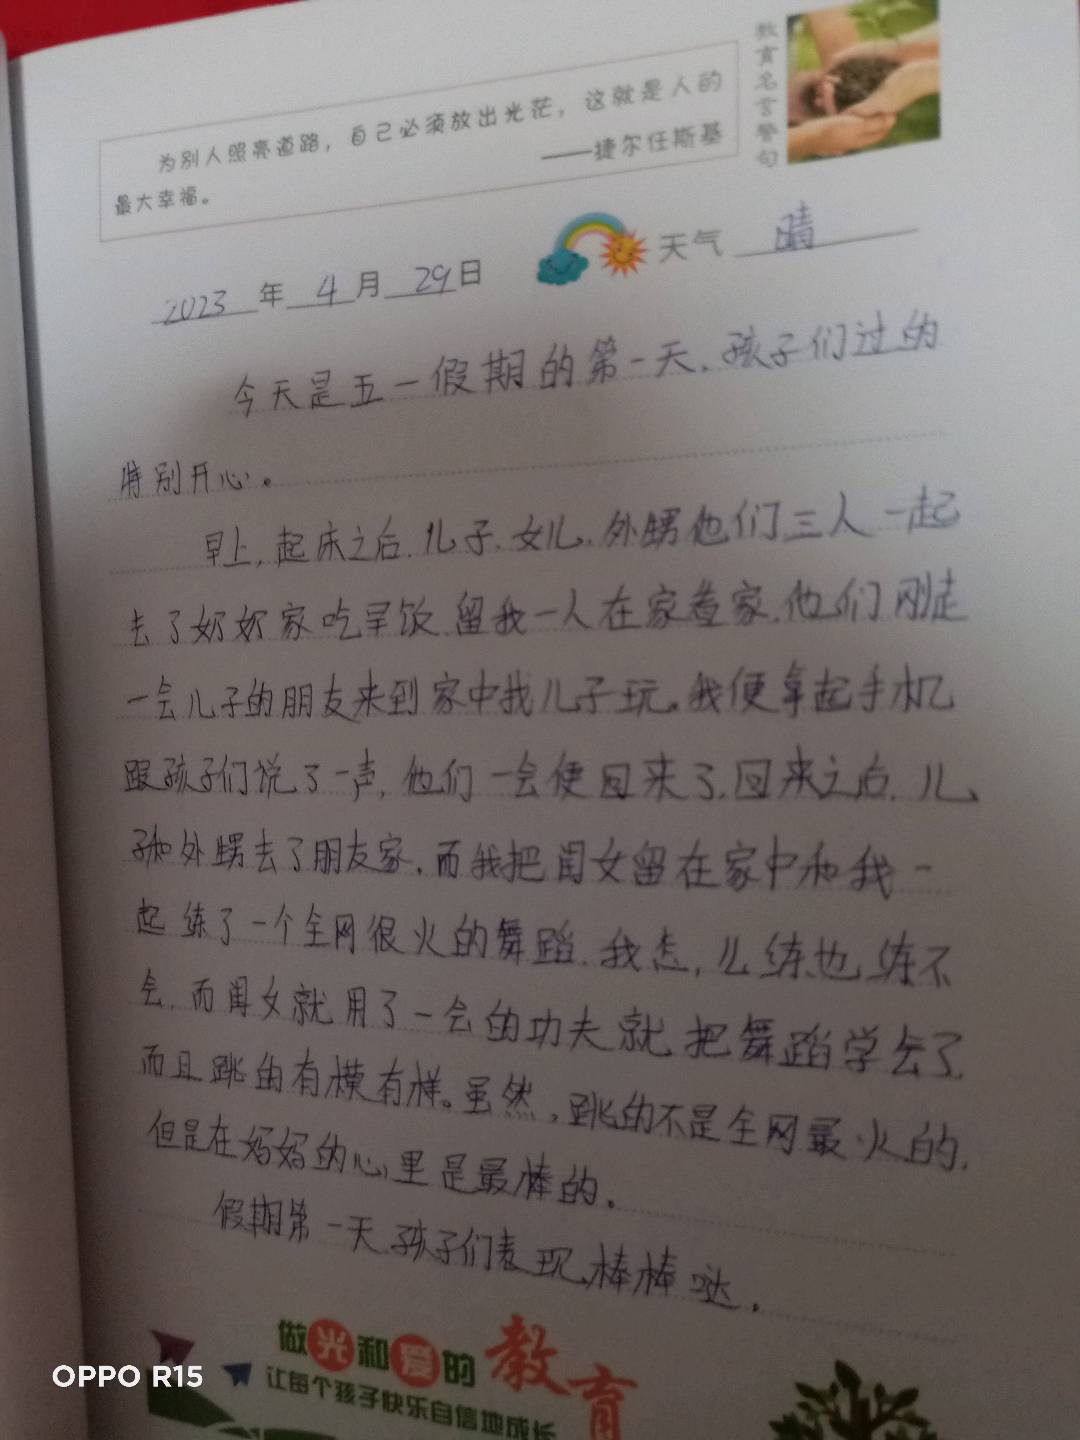 教育名言警句
为别人照亮道路，自己必须放出光芒，这就是人的
最大幸福。
——捷尔任斯基
2023年4月29日
天气 晴
今天是五一假期的第一天，孩子们过的
特别开心。
早上，起床之后，儿子、女儿、外甥他们三人一起
去了奶奶家吃早饭，留我一人在家看家，他们刚走
一会儿子的朋友来到家中找儿子玩。我便拿起手机
跟孩子们说了一声，他们一会便回来了，回来之后，儿
子和外甥去了朋友家，而我把闺女留在家中和我一
起练了一个全网很火的舞蹈，我怎么练也练不
会，而闺女就用了一会的功夫就把舞蹈学会了，
而且跳的有模有样。虽然，跳的不是全网最火的，
但是在妈妈的心里是最棒的。
假期第一天，孩子们表现棒棒哒。
做光和爱的教育
让每个孩子快乐自信地成长
OPPO R15